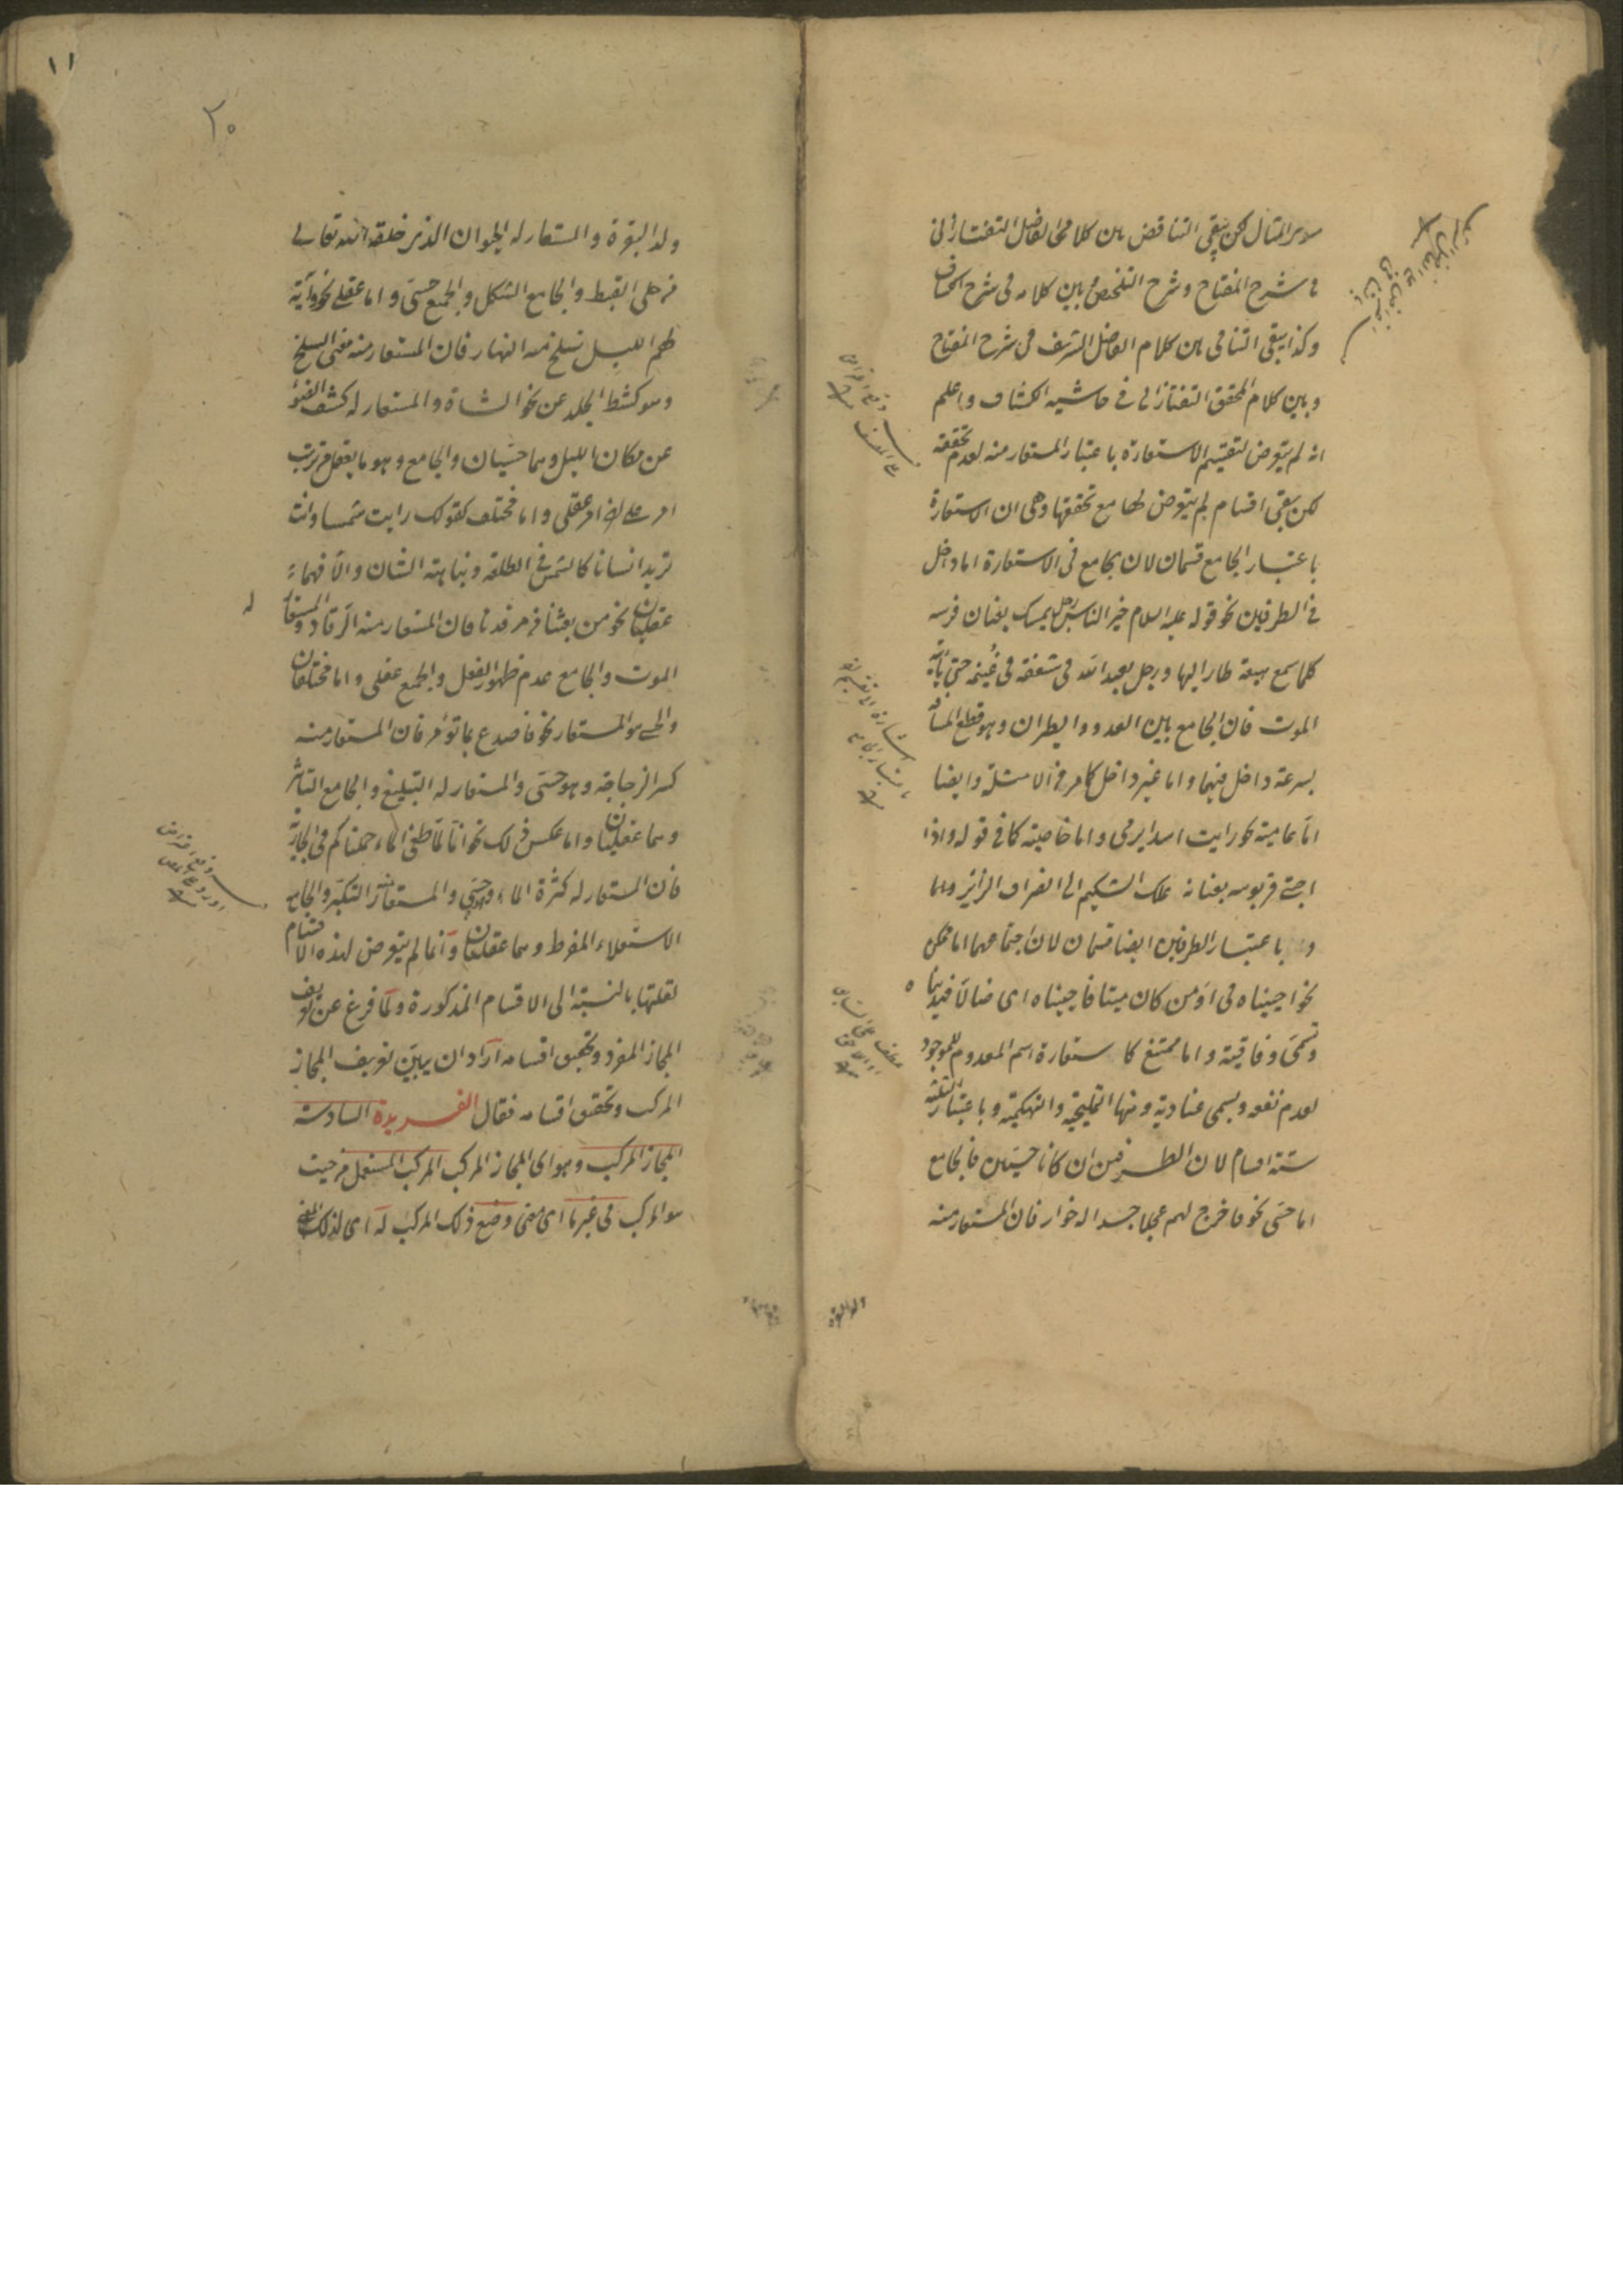 هو المثال لكن يبقى التناقض بين كلامي الفاضل التفتازاني
في شرح المفتاح وشرح التلخيص وبين كلامه في شرح الكشاف
وكذا يبقى التنافي بين كلام الفاضل الشريف في شرح المفتاح
وبين كلام المحقق التفتازاني في حاشيه الكشاف واعلم
انه لم يتعرض لتقسيم الاستعارة باعتبار المستعار منه لعدم تحققه
لكن بقى اقسام لم يتعرض لها مع تحققها وهى ان الاستعارة
باعتبار الجامع قسمان لان الجامع فى الاستعارة اما داخل
في الطرفين نحو قوله عليه السلام خير الناس رجل يمسك بعنان فرسه
كلما سمع هيعة طار اليها ورجل يعبد الله في شعفة في غنيمه حتى يأتيه
الموت فان الجامع بين العدو والطيران وهو قطع المسافه
بسرعة داخل فيهما واما غير داخل كما مر في الامثلة وايضا
اما عامية نحو رايت اسدا يرمى واما خاصية كما في قوله واذا
احتبى قربوسه بعنانه علك الشكيم الى انصراف الزائر
وباعتبار الطرفين ايضا قسمان لان اجتماعهما اما ممكن
نحو احييناه في اومن كان ميتا فاحييناه اى ضالا فهديناه
وتسمى وفاقية واما ممتنع كاستعارة اسم المعدوم للموجود
لعدم نفعه ويسمى عنادية ومنها التمليحية والتهكمية وباعتبار الثلثة
ستة اقسام لان الطرفين ان كانا حسيين فالجامع
اما حسى نحو فاخرج لهم عجلا جسدا له خوار فان المستعار منه
ولد البقرة
١١
٢٠
ولد البقرة والمستعار له الحيوان الذي خلقه الله تعالى
من حلى القبط والجامع الشكل والجميع حسى واما عقلى نحو وآية
لهم الليل نسلخ منه النهار فان المستعار منه معنى السلخ
وهو كشط الجلد عن نحو الشاة والمستعار له كشف الضوء
عن مكان الليل وهما حسيان والجامع وهو ما يعقل من ترتب
امر على امر عقلى واما مختلف كقولك رايت شمسا وانت
تريد انسانا كالشمس في الطلعة ونباهة الشان والا فهما
عقليان نحو من بعثنا من مرقدنا فان المستعار منه الرقاد والمستعار له
الموت والجامع عدم ظهور الفعل والجميع عقلى واما مختلفان
والحسى هو المستعار نحو فاصدع بما تؤمر فان المستعار منه
كسر الزجاجة وهو حسى والمستعار له التبليغ والجامع التاثير
وهما عقليان واما عكس ذلك نحو انا لما طغى الماء حملناكم في الجارية
فان المستعار له كثرة الماء وهو حسى والمستعار منه التكبر والجامع
الاستعلاء المفرط وهما عقليان وانما لم يتعرض لهذه الاقسام
لقلتها بالنسبة الى الاقسام المذكورة ولما فرغ عن تعريف
المجاز المفرد وتحقيق اقسامه اراد ان يبين تعريف المجاز
المركب وتحقيق اقسامه فقال الفريدة السادسة
المجاز المركب وهو اى المجاز المركب المركب المستعمل من حيث
هو المركب في غير ما اى معنى وضع ذلك المركب له اى لذلك المعنى